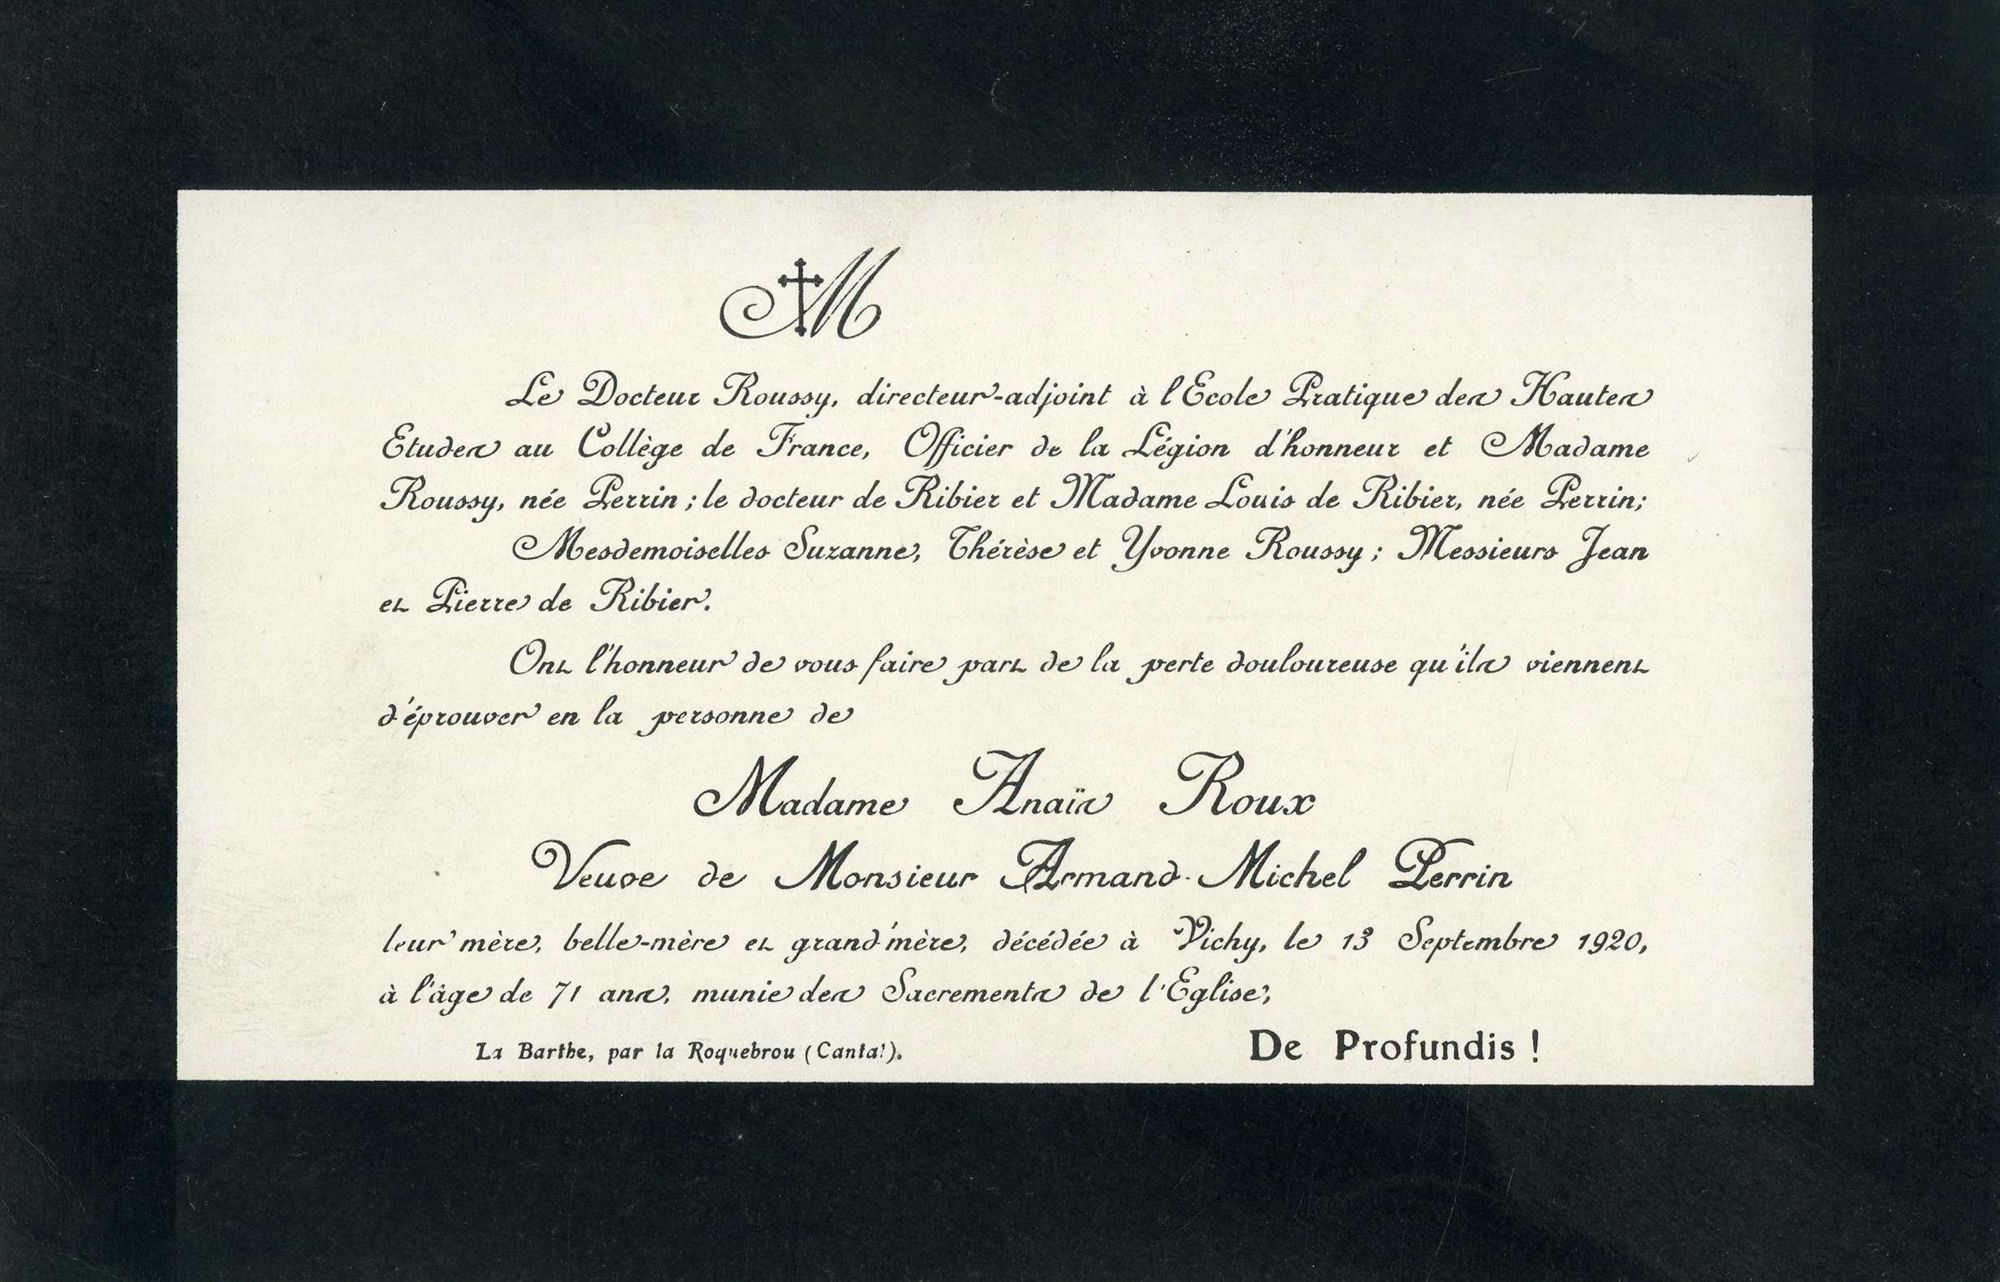 M
Le Docteur Roussy, directeur-adjoint à l'Ecole Pratique des Hautes
Etudes au Collège de France, Officier de la Légion d'honneur et Madame
Roussy, née Perrin ; le docteur de Ribier et Madame Louis de Ribier, née Perrin ;
Mesdemoiselles Suzanne, Thérèse et Yvonne Roussy ; Messieurs Jean
et Pierre de Ribier.
Ont l'honneur de vous faire part de la perte douloureuse qu'ils viennent
d'éprouver en la personne de
Madame Anaïs Roux
Veuve de Monsieur Armand-Michel Perrin
leur mère, belle-mère et grand'mère, décédée à Vichy, le 13 Septembre 1920,
à l'âge de 71 ans, munie des Sacrements de l'Eglise,
La Barthe, par la Roquebrou (Cantal).
De Profundis !